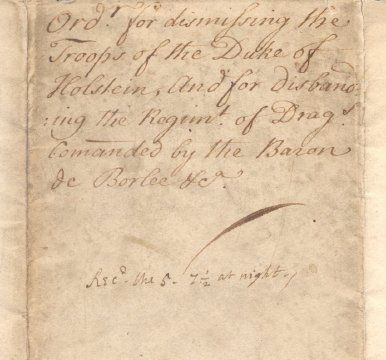 Ord.r for dismissing the
Troops of the Duke of
Holstein, And for disband-
:ing the Regim.t of Drag.s
Comanded by the Baron
de Borlee &c.a
Rec.d the 5 - 7½ at night